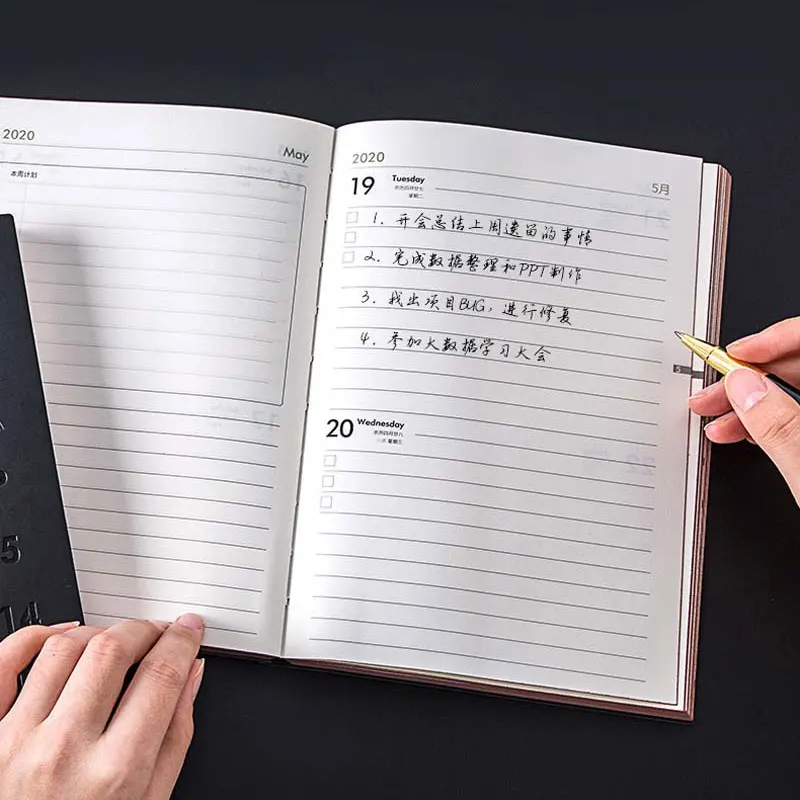 2020
May
本周计划
2020
5月
19
Tuesday
农历四月廿七
星期二
1. 开会总结上周遗留的事情
2. 完成数据整理和PPT制作
3. 找出项目BUG，进行修复
4. 参加大数据学习大会
5
20
Wednesday
农历四月廿八
小满 星期三
5
14